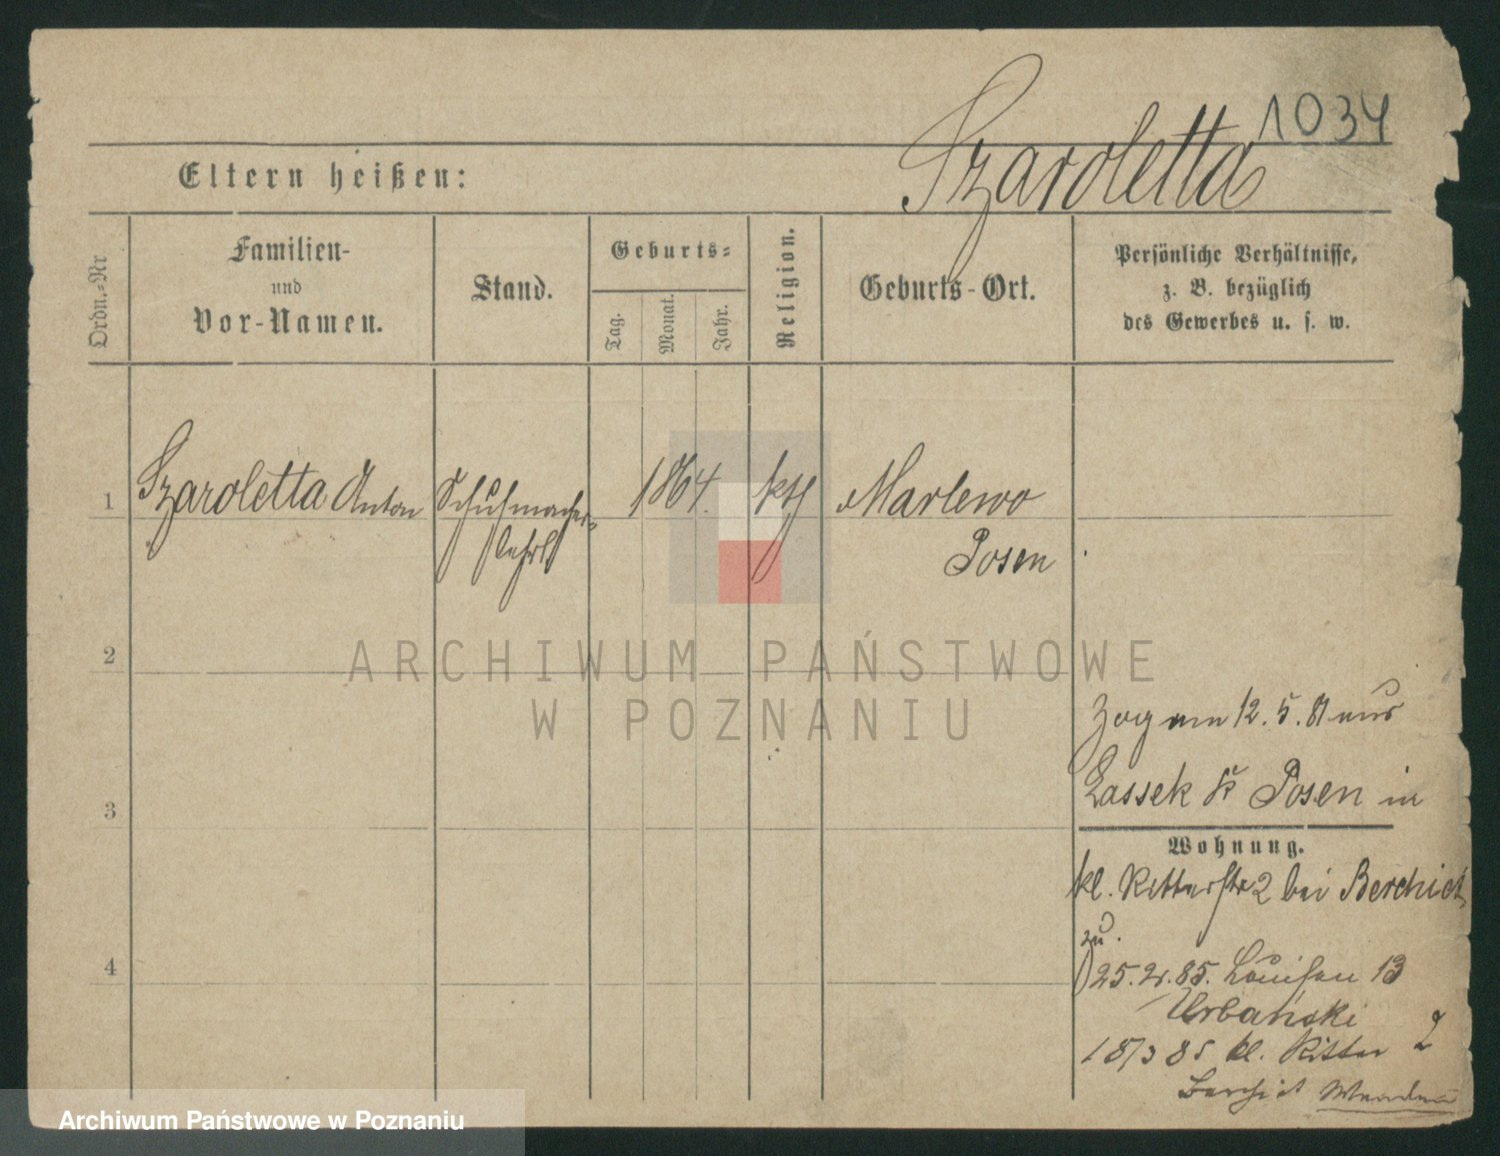 1034
Szaroletta
Eltern heißen:
Ordn.-Nr
Familien-
und
Vor-Namen.
Stand.
Geburts-
Tag.
Monat.
Jahr.
Religion.
Geburts-Ort.
Persönliche Verhältnisse,
z. B. bezüglich
des Gewerbes u. s. w.
1 Szaroletta Anton Schuhmacher- 1864. kth Marlewo
lehrl Posen
2
3
4
ARCHIWUM PAŃSTWOWE
W POZNANIU
Zog am 12. 5. 81 aus
Lassek Kr Posen in
Wohnung.
kl. Ritterstr 2 bei Berchiet
zu.
25. 2. 85. Louisen 13
Urbański
18/3 85 kl. Ritter 2
Archiwum Państwowe w Poznaniu